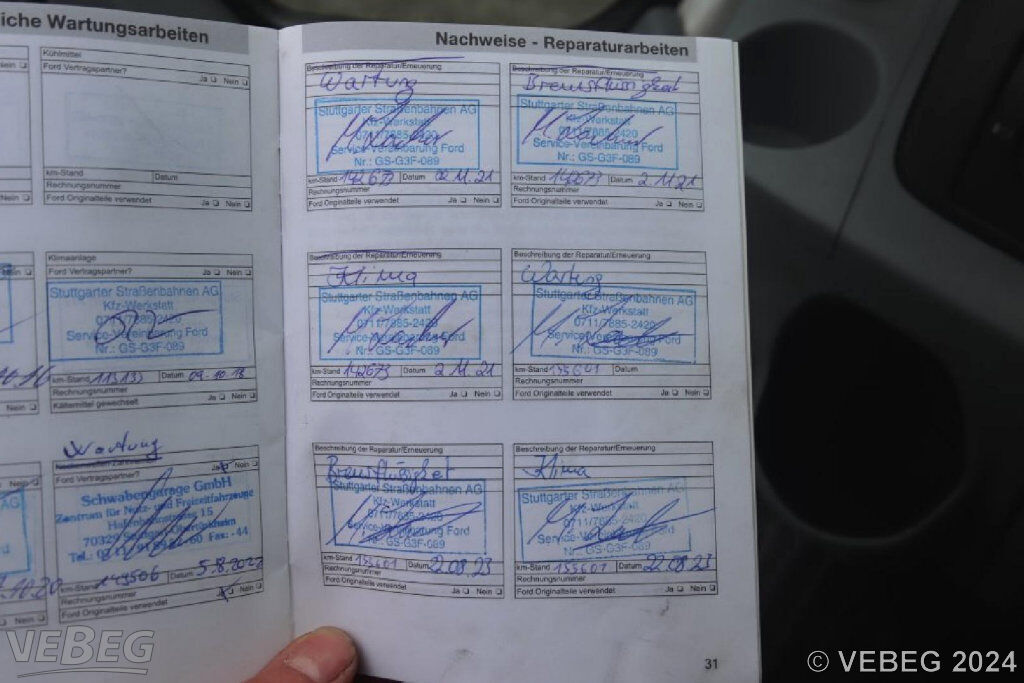 iche Wartungsarbeiten
Kühlmittel
Ford Vertragspartner?
Ja Nein
km-Stand Datum
Rechnungsnummer
Ford Originalteile verwendet Ja Nein
Klimaanlage
Ford Vertragspartner? Ja Nein
Stuttgarter Straßenbahnen AG
Kfz-Werkstatt
0711/7885-2420
Service-Vereinbarung Ford
Nr.: GS-G3F-089
km-Stand Datum 09.10.18
Rechnungsnummer
Kältemittel gewechselt Ja Nein
Wartung
Ford Vertragspartner? Ja Nein
Schwabengarage GmbH
Zentrum für Nutz- und Freizeitfahrzeuge
15
Tel.: Fax: -44
km-Stand 149506 Datum 5.8.2022
Rechnungsnummer
Ford Originalteile verwendet Ja Nein
Nachweise - Reparaturarbeiten
Beschreibung der Reparatur/Erneuerung
Wartung
Stuttgarter Straßenbahnen AG
Kfz-Werkstatt
0711/7885-2420
Service-Vereinbarung Ford
Nr.: GS-G3F-089
km-Stand 142673 Datum 02.11.21
Rechnungsnummer
Ford Originalteile verwendet Ja Nein
Beschreibung der Reparatur/Erneuerung
Bremsflüssigkeit
Stuttgarter Straßenbahnen AG
Kfz-Werkstatt
0711/7885-2420
Service-Vereinbarung Ford
Nr.: GS-G3F-089
km-Stand 142673 Datum 2.11.21
Rechnungsnummer
Ford Originalteile verwendet Ja Nein
Beschreibung der Reparatur/Erneuerung
Klima
Stuttgarter Straßenbahnen AG
Kfz-Werkstatt
0711/7885-2420
Service-Vereinbarung Ford
Nr.: GS-G3F-089
km-Stand 142673 Datum 2.11.21
Rechnungsnummer
Ford Originalteile verwendet Ja Nein
Beschreibung der Reparatur/Erneuerung
Wartung
Stuttgarter Straßenbahnen AG
Kfz-Werkstatt
0711/7885-2420
Service-Vereinbarung Ford
Nr.: GS-G3F-089
km-Stand 155601 Datum
Rechnungsnummer
Ford Originalteile verwendet Ja Nein
Beschreibung der Reparatur/Erneuerung
Bremsflüssigkeit
Stuttgarter Straßenbahnen AG
Kfz-Werkstatt
0711/7885-2420
Service-Vereinbarung Ford
Nr.: GS-G3F-089
km-Stand 155601 Datum 22.08.23
Rechnungsnummer
Ford Originalteile verwendet Ja Nein
Beschreibung der Reparatur/Erneuerung
Klima
Stuttgarter Straßenbahnen AG
Kfz-Werkstatt
0711/7885-2420
Service-Vereinbarung Ford
Nr.: GS-G3F-089
km-Stand 155601 Datum 22.08.23
Rechnungsnummer
Ford Originalteile verwendet Ja Nein
31
VEBEG
© VEBEG 2024